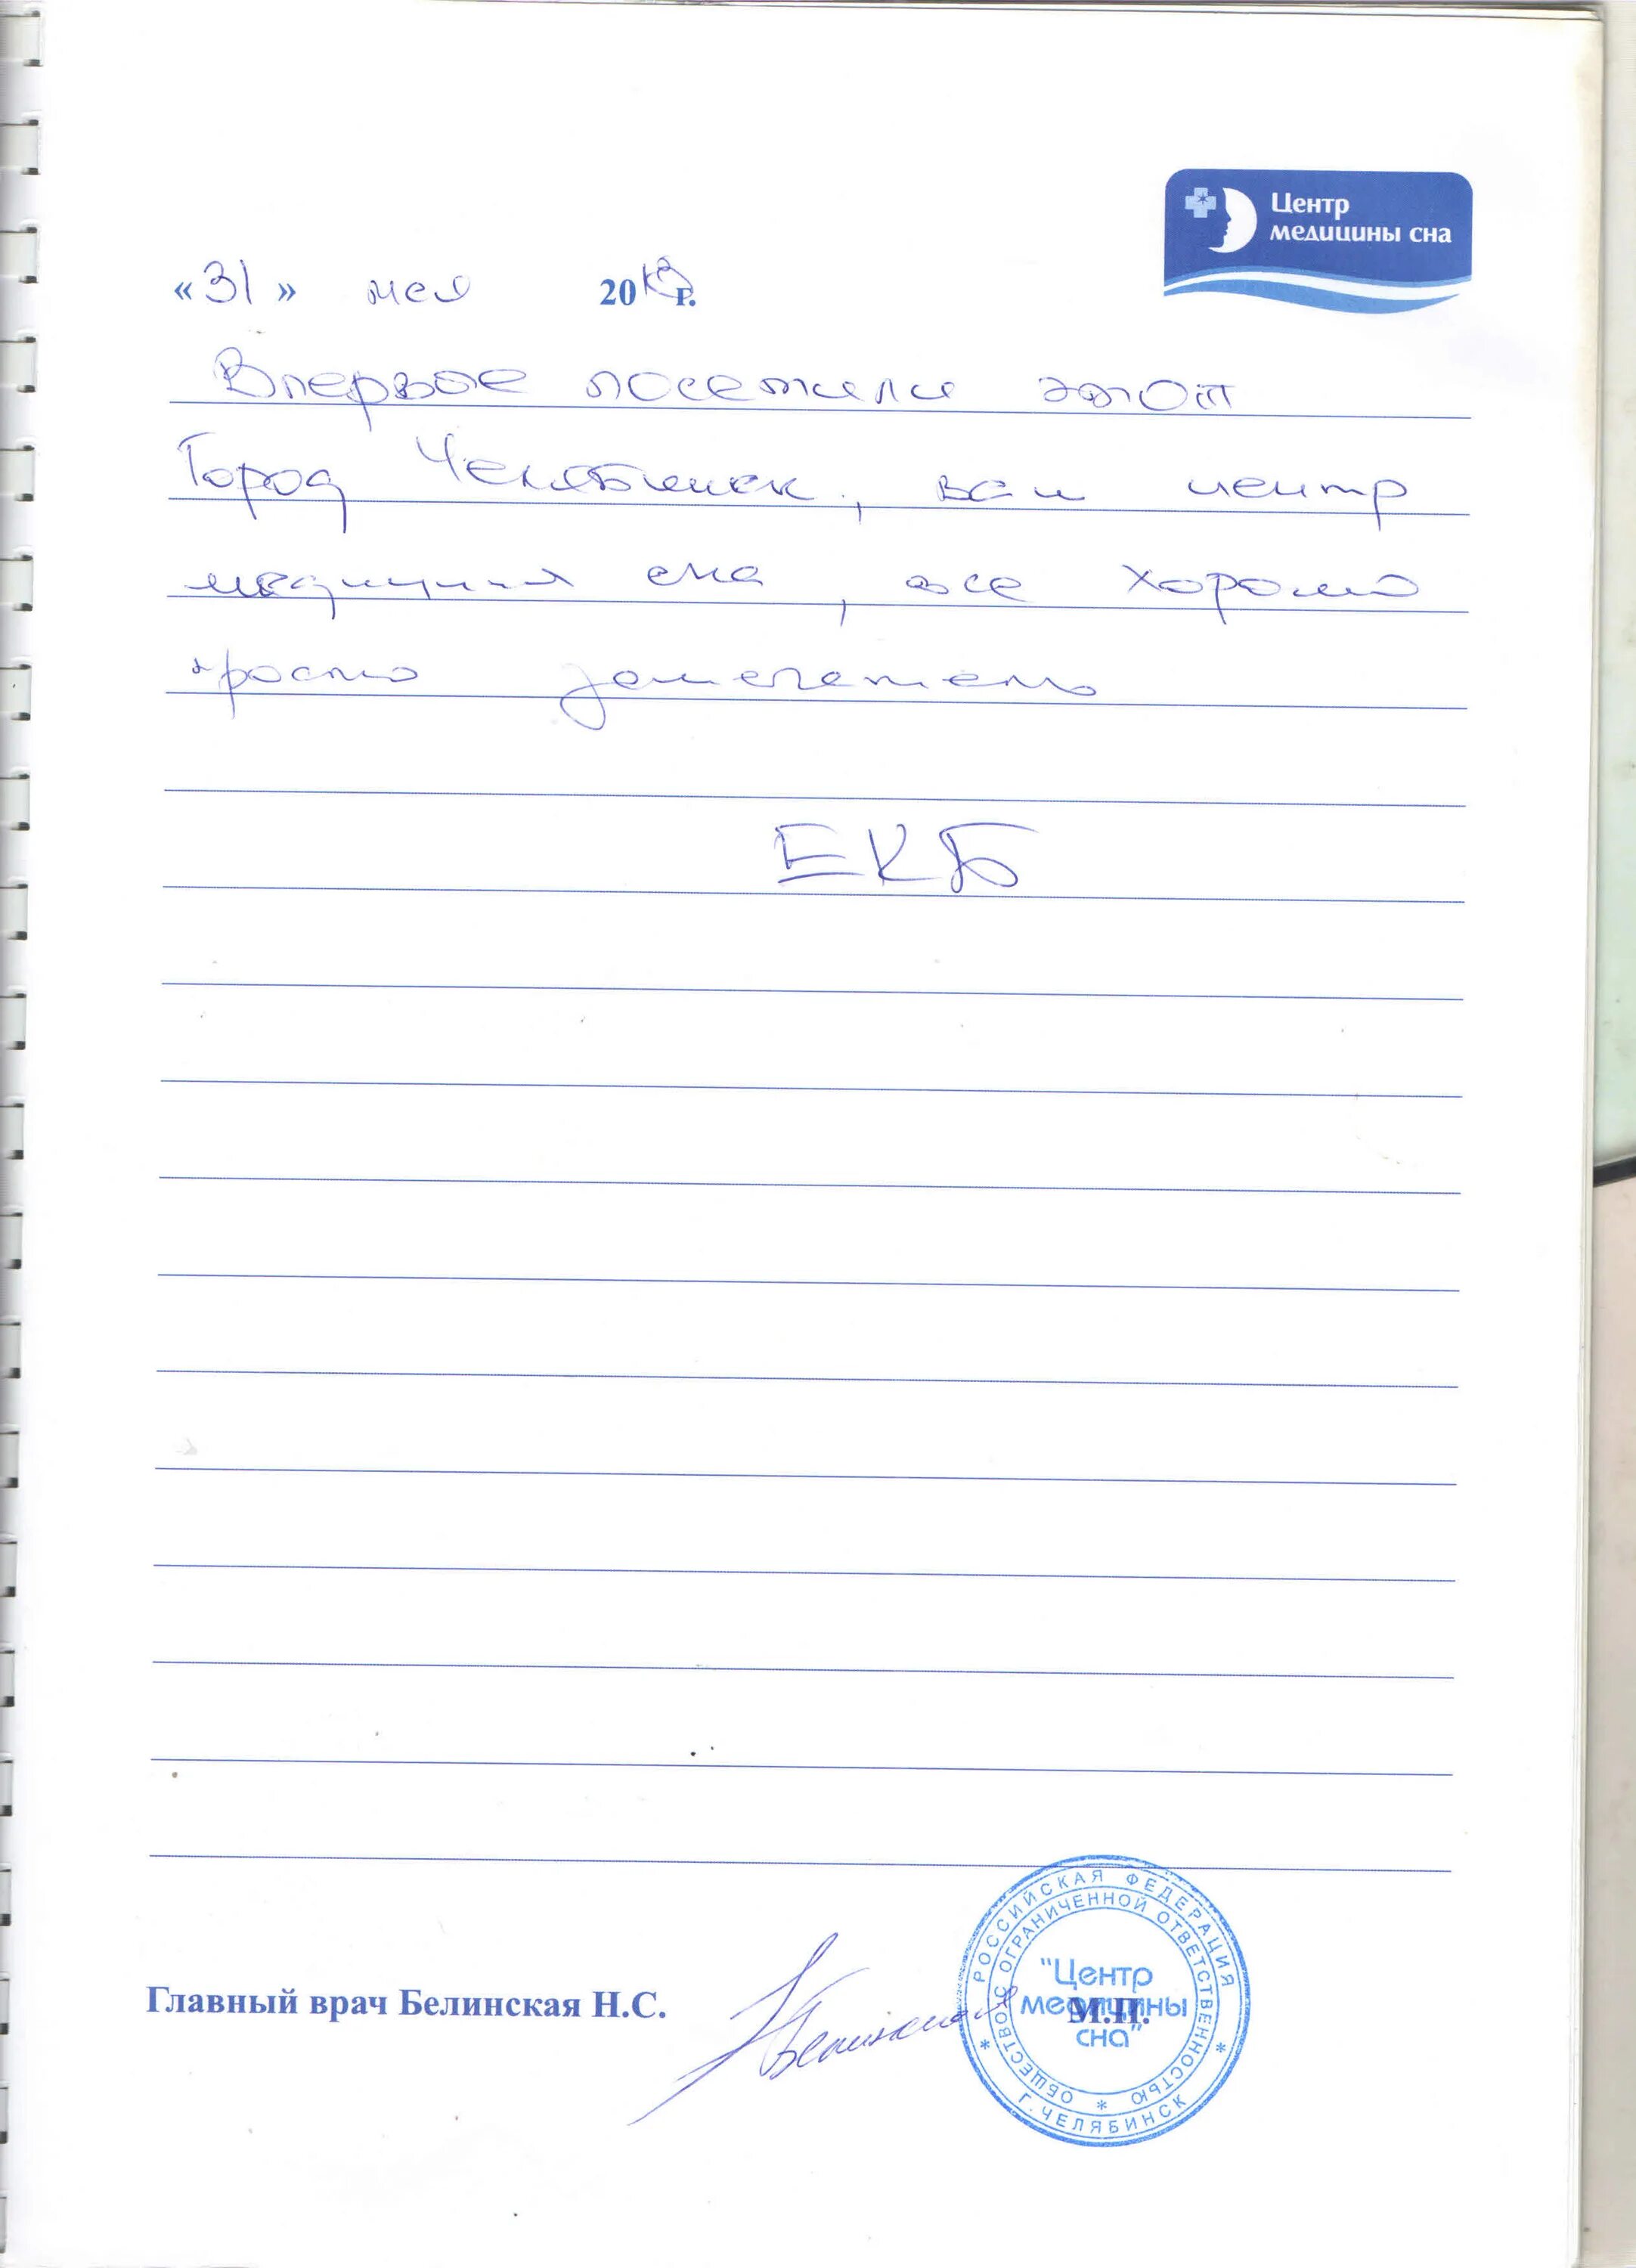 Центр
медицины сна
«31» мая 20 г.
Впервое посетили этот
Город Челябинск, ваш центр
медицины сна, все хорошо
просто замечатель
ЕКБ
Главный врач Белинская Н.С.
Белинская
М.П.
РОССИЙСКАЯ ФЕДЕРАЦИЯ
ОБЩЕСТВО С ОГРАНИЧЕННОЙ ОТВЕТСТВЕННОСТЬЮ
"Центр
медицины
сна"
Г. ЧЕЛЯБИНСК